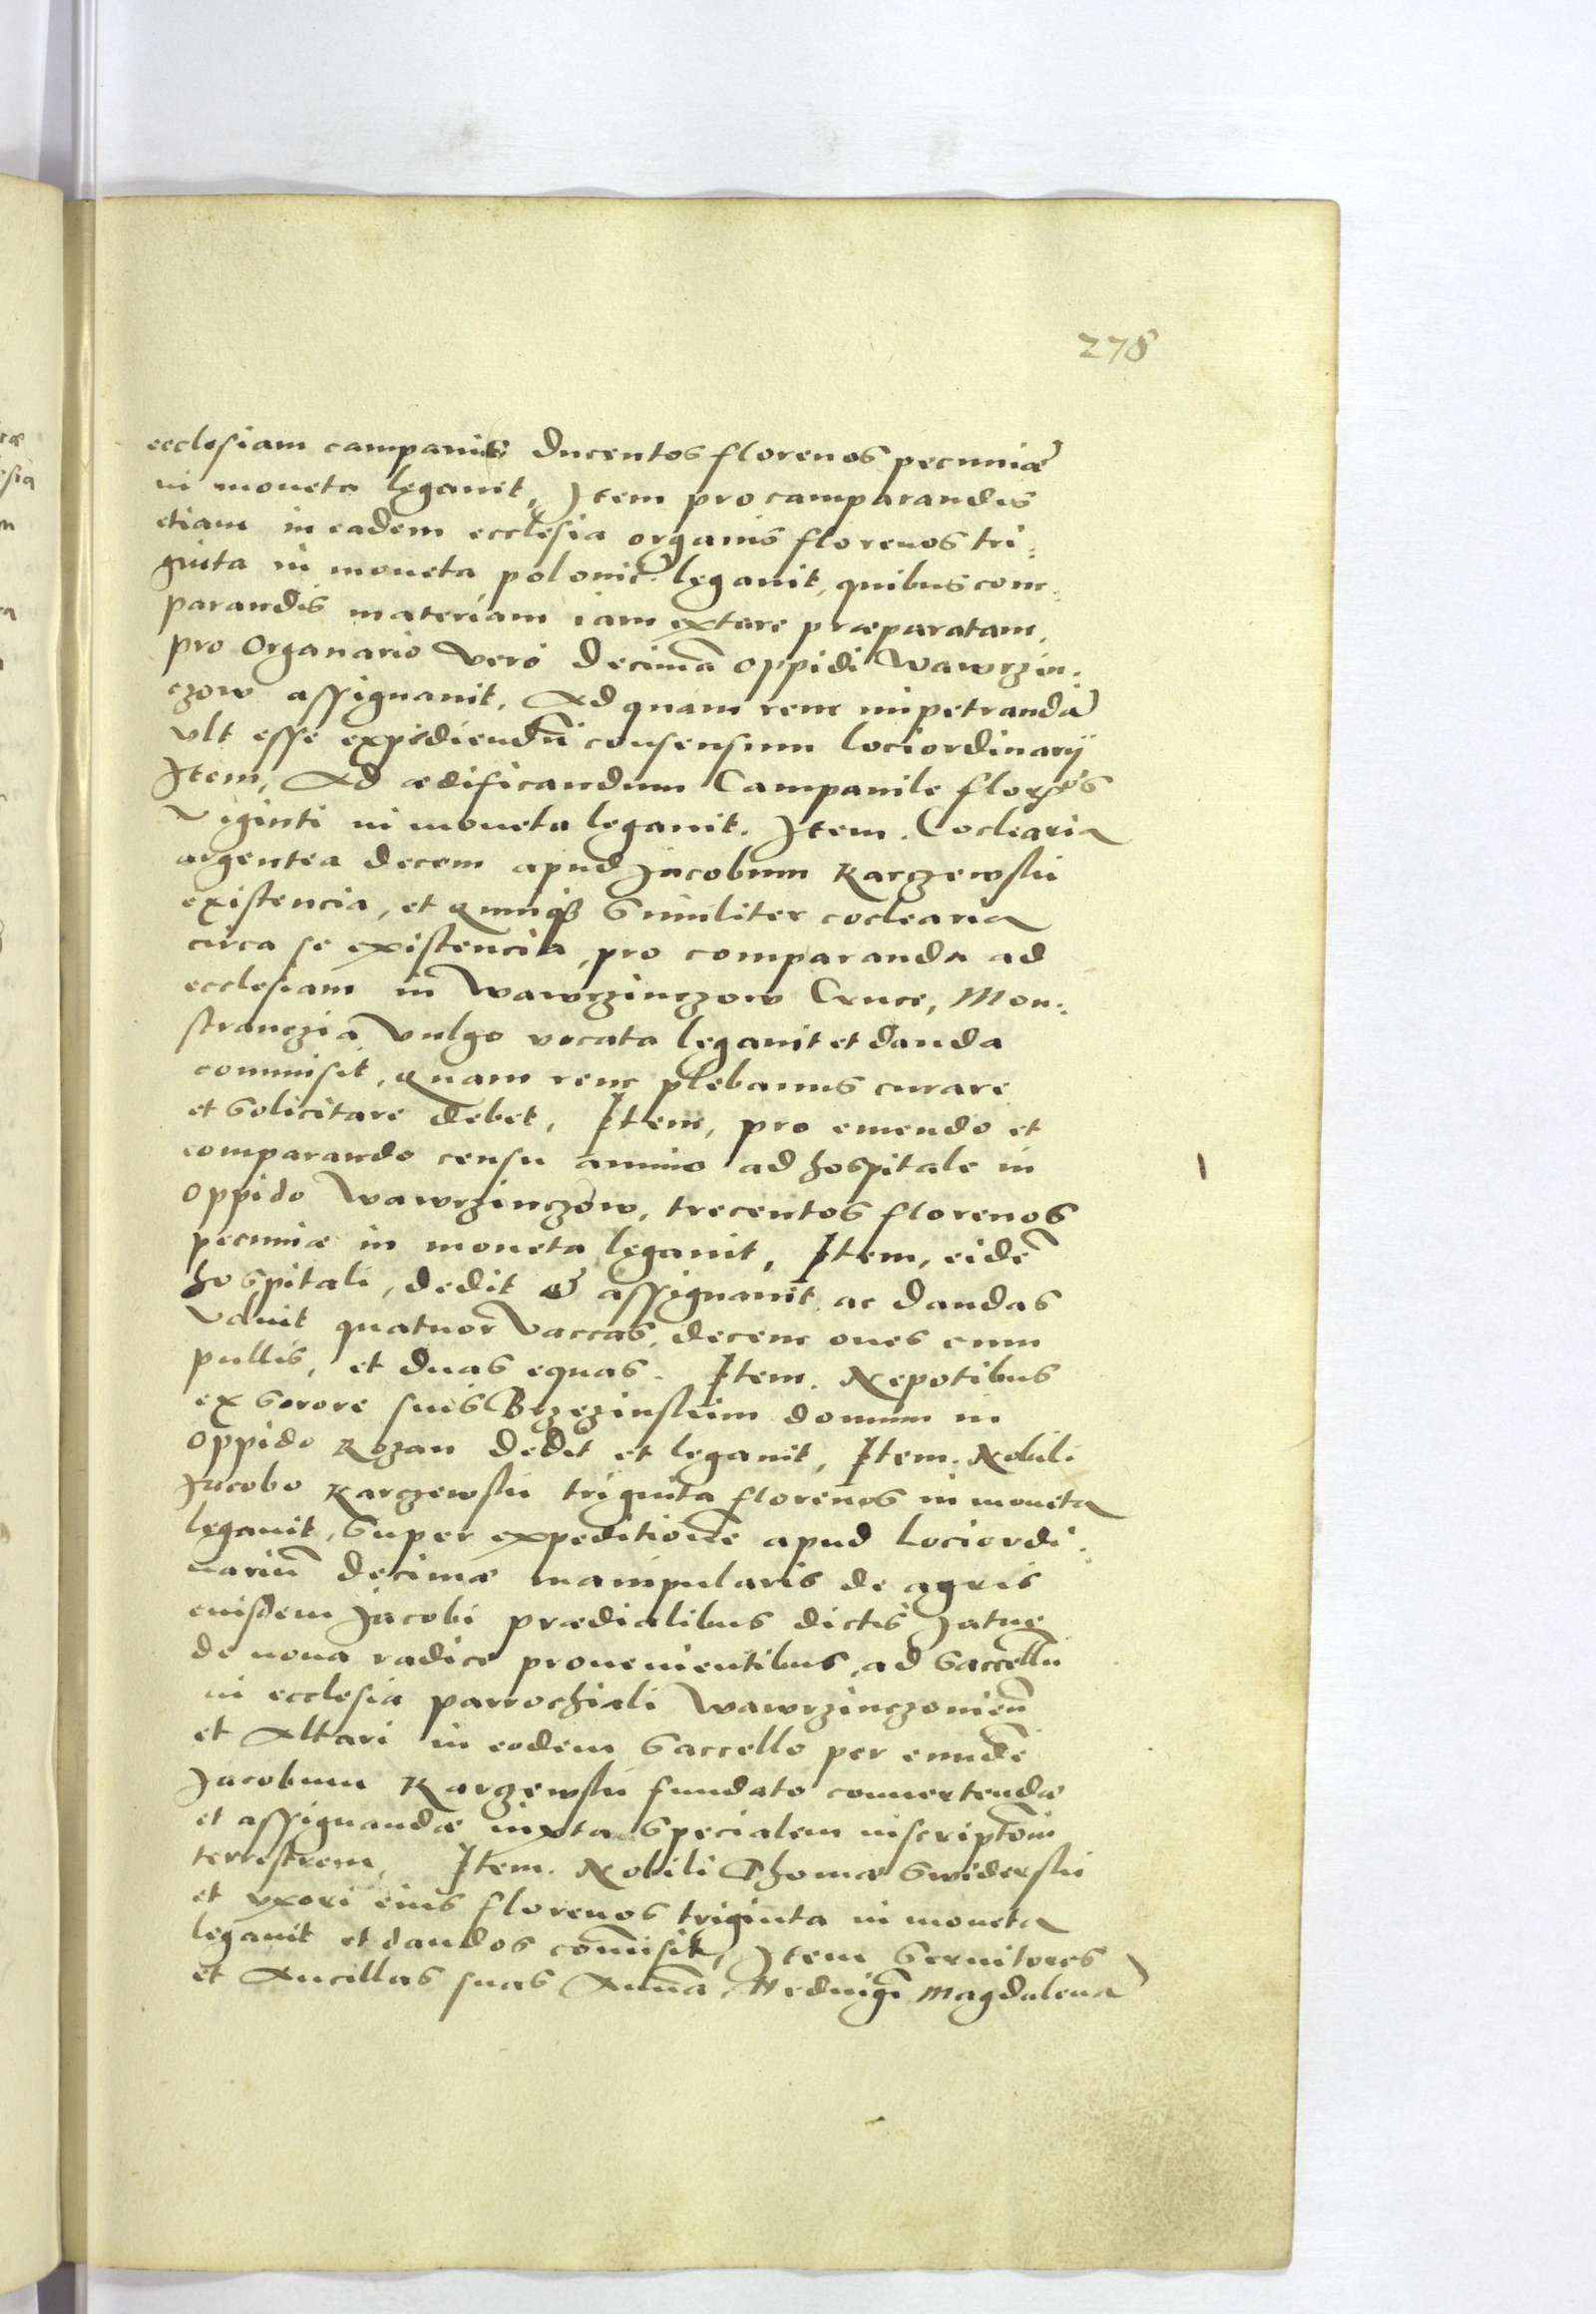 278
ecclesiam campanis ducentos florenos pecuniæ
in moneta legauit, Item pro comparandis
etiam in eadem ecclesia organis florenos tri:
ginta in moneta polonic. legauit, quibus com:
parandis materiam iam extare præparatam,
pro Organario vero decimã oppidi Wawrzin:
czow assignauit. Ad quam rem impetrandã
vlt esse expediendũ consensum lociordinarij
Item, Ad ædificandum Campanile floreños
viginti in moneta legauit. Item. Coclearia
argentea decem apud Jacobum Karczewski
existencia, et quinqꝫ similiter coclearia
circa se existencia, pro comparanda ad
ecclesiam in Wawrzinczow Cruce, Mon:
stranczia vulgo vocata legauit et danda
commisit, quam rem plebanus curare
et solicitare debet, Item, pro emendo et
comparando censu annuo ad hospitale in
oppido Wawrzinczow, trecentos florenos
pecuniæ in moneta legauit, Item, eidẽ
hospitali, dedit & assignauit ac dandas
voluit quatuor vaccas, decem oues cum
pullis, et duas equas. Item. Nepotibus
ex sorore suis Brzezinskim domum in
oppido Rozan dedit et legauit, Item. Nobili
Jacobo Karczewski triginta florenos in moneta
legauit, super expeditione apud lociordi:
nariũ decimæ manipularis de agris
eiusdem Jacobi prædialibus dictis
de noua radice prouenientibus, ad saccellũ
in ecclesia parrochiali Wawrzinczouien̄
et Altari in eodem saccello per eundẽ
Jacobum Karczewski fundato conuertendæ
et assignandæ iuxta specialem inscriptõem
terrestrem, Item. Nobili Thomæ Swiderski
et vxori eius florenos triginta in moneta
legauit et dandos com̄isit, Item seruitores
et Ancillas suas Annã, Heduigẽ Magdalenã